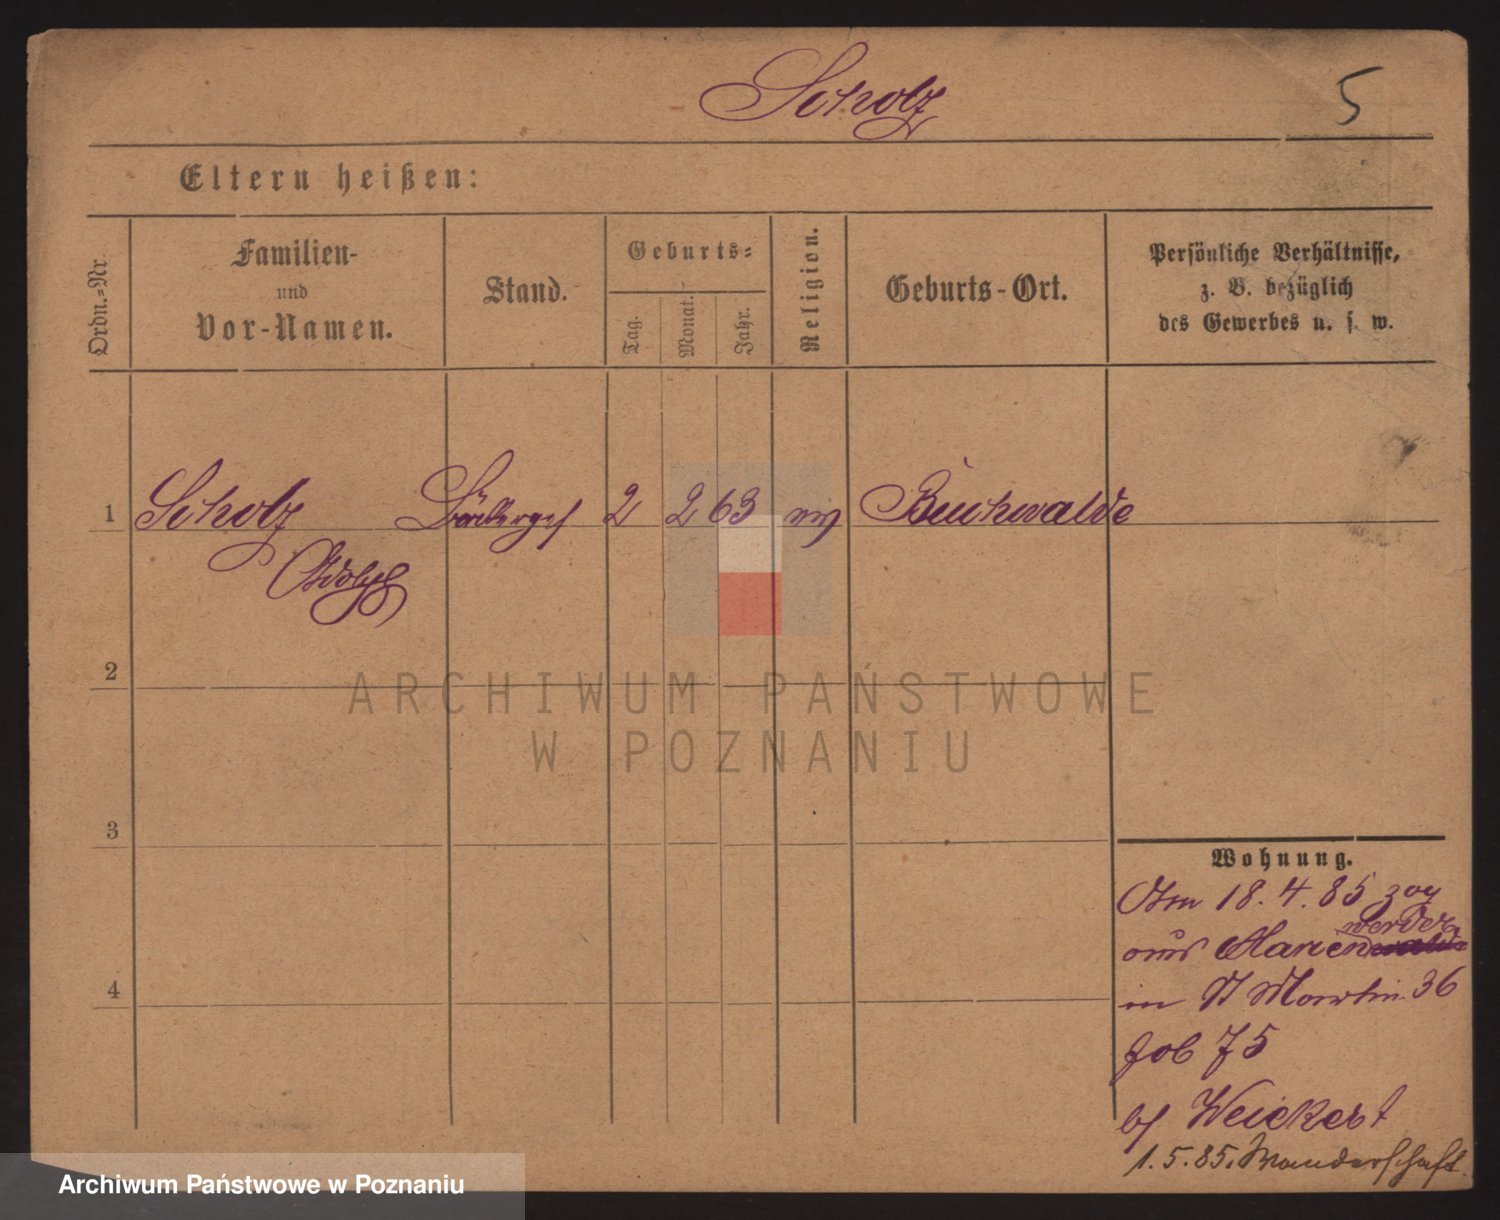 Scholz
5
Eltern heißen:
Ordn.-Nr.
Familien-
und
Vor-Namen.
Stand.
Geburts-
Tag.
Monat.
Jahr.
Religion.
Geburts-Ort.
Persönliche Verhältnisse,
z. B. bezüglich
des Gewerbes u. s. w.
1 Scholz Bäckerges 2 2 63 ev Buchwalde
Adolph
2
ARCHIWUM PAŃSTWOWE
W POZNANIU
3
4
Wohnung.
Am 18.4.85 zog
werder
aus Marien
in St Martin 36
Job 75
bf Weickert
1.5.85. Wanderschaft
Archiwum Państwowe w Poznaniu